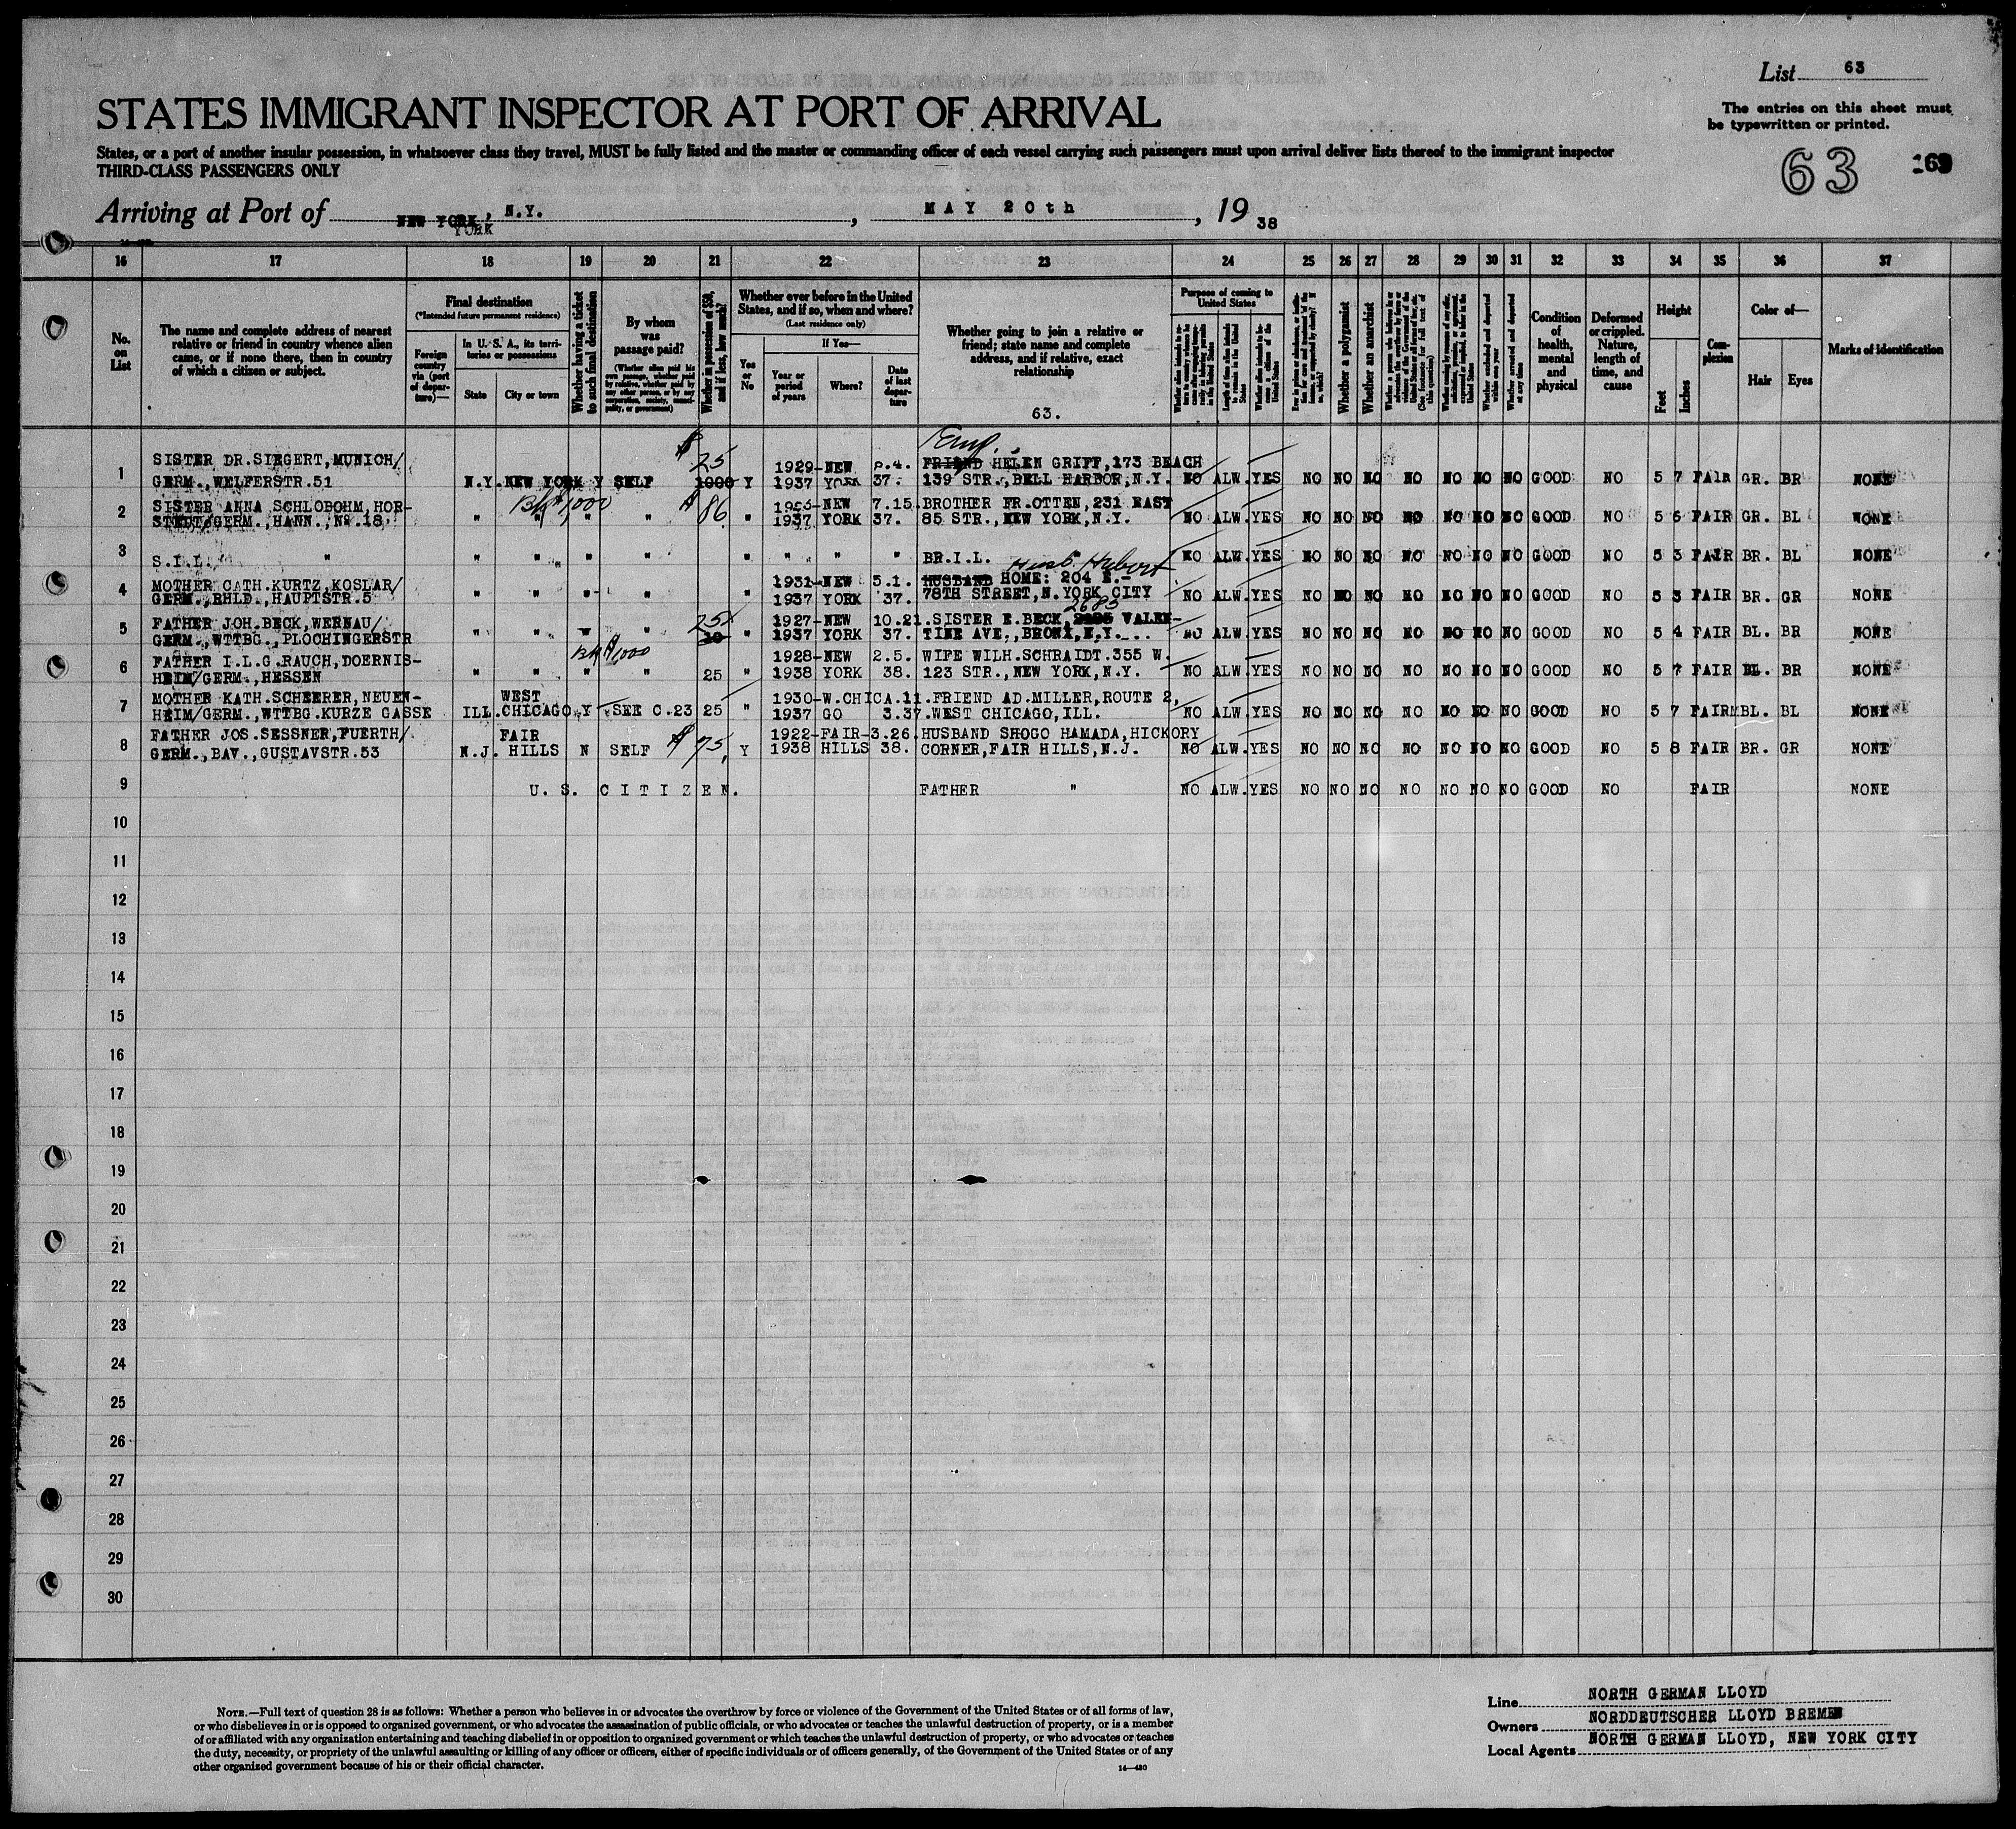 List 63
STATES IMMIGRANT INSPECTOR AT PORT OF ARRIVAL
The entries on this sheet must
be typewritten or printed.
States, or a port of another insular possession, in whatsoever class they travel, MUST be fully listed and the master or commanding officer of each vessel carrying such passengers must upon arrival deliver lists thereof to the immigrant inspector
THIRD-CLASS PASSENGERS ONLY
63
Arriving at Port of NEW YORK, N.Y., MAY 20th, 19 38
YORK
16 17 18 19 20 21 22 23 24 25 26 27 28 29 30 31 32 33 34 35 36 37
No. on List
The name and complete address of nearest relative or friend in country whence alien came, or if none there, then in country of which a citizen or subject.
Final destination
(*Intended future permanent residence)
Foreign country via (port of departure)—
In U. S. A., its territories or possessions
State
City or town
Whether having a ticket to such final destination
By whom was passage paid?
(Whether alien paid his own passage, whether paid by relative, whether paid by any other person, or by any corporation, society, municipality, or government)
Whether in possession of $50, and if less, how much?
Whether ever before in the United States, and if so, when and where?
(Last residence only)
Yes or No
If Yes—
Year or period of years
Where?
Date of last departure
Whether going to join a relative or friend; state name and complete address, and if relative, exact relationship
63.
Purpose of coming to United States
Length of time alien intends to remain in the United States
Whether alien intends to become a citizen of the United States
Whether a polygamist
Whether an anarchist
Whether arrested and deported at any time
Condition of health, mental and physical
Deformed or crippled. Nature, length of time, and cause
Height
Feet
Inches
Complexion
Color of—
Hair
Eyes
Marks of identification
1 SISTER DR.SIEGERT,MUNICH/ $ 25 1929-NEW 8.4. FRIEND HELEN GRIFF,173 BEACH
GERM.,WELFERSTR.51 N.Y. NEW YORK Y SELF 1000 Y 1937 YORK 37. 139 STR.,BELL HARBOR,N.Y. NO ALW. YES NO NO NO NO NO NO NO GOOD NO 5 7 FAIR GR. BR NONE
2 SISTER ANNA SCHLOBOHM,HOR- $1,000 $ 86 NEW 7.15. BROTHER FR.OTTEN,231 EAST
STEDT/GERM.,HANN.,NR.18. " " " " " 1937 YORK 37. 85 STR.,NEW YORK,N.Y. NO ALW. YES NO NO NO NO NO NO NO GOOD NO 5 6 FAIR GR. BL NONE
3 S.I.L. " " " " " " " " " BR.I.L. NO ALW. YES NO NO NO NO NO NO NO GOOD NO 5 3 FAIR BR. BL NONE
Husb. Hubert
4 MOTHER CATH.KURTZ,KOSLAR/ 1931-NEW 5.1. HUSBAND HOME: 204 E.-
GERM.,RHLD.,HAUPTSTR.5 " " " " " 1937 YORK 37. 78TH STREET,N.YORK CITY NO ALW. YES NO NO NO NO NO NO NO GOOD NO 5 3 FAIR BR. GR NONE
2685
5 FATHER JOH.BECK,WERNAU/ 25 1927-NEW 10.21. SISTER E.BECK, VALEN-
GERM.,WTTBG.,PLOCHINGERSTR " " " " " 1937 YORK 37. TINE AVE.,BRONX,N.Y. NO ALW. YES NO NO NO NO NO NO NO GOOD NO 5 4 FAIR BL. BR NONE
6 FATHER I.L.G.RAUCH,DOERNIS- $1000 1928-NEW 2.5. WIFE WILH.SCHRAIDT.355 W.
HEIM/GERM.,HESSEN " " " " 25 " 1938 YORK 38. 123 STR.,NEW YORK,N.Y. NO ALW. YES NO NO NO NO NO NO NO GOOD NO 5 7 FAIR BL. BR NONE
7 MOTHER KATH.SCHEERER,NEUEN- WEST 1930-W.CHICA.11. FRIEND AD.MILLER,ROUTE 2,
HEIM/GERM.,WTTBG.KURZE GASSE ILL. CHICAGO Y SEE C.23 25 " 1937 GO 3.37. WEST CHICAGO,ILL. NO ALW. YES NO NO NO NO NO NO NO GOOD NO 5 7 FAIR BL. BL NONE
8 FATHER JOS.SESSNER,FUERTH/ FAIR 1922-FAIR-3.26. HUSBAND SHOGO HAMADA,HICKORY
GERM.,BAV.,GUSTAVSTR.53 N.J. HILLS N SELF $ 75. Y 1938 HILLS 38. CORNER,FAIR HILLS,N.J. NO ALW. YES NO NO NO NO NO NO NO GOOD NO 5 8 FAIR BR. GR NONE
9 U. S. C I T I Z E N. FATHER " NO ALW. YES NO NO NO NO NO NO NO GOOD NO FAIR NONE
10
11
12
13
14
15
16
17
18
19
20
21
22
23
24
25
26
27
28
29
30
NOTE.—Full text of question 28 is as follows: Whether a person who believes in or advocates the overthrow by force or violence of the Government of the United States or of all forms of law,
or who disbelieves in or is opposed to organized government, or who advocates the assassination of public officials, or who advocates or teaches the unlawful destruction of property, or is a member
of or affiliated with any organization entertaining and teaching disbelief in or opposition to organized government or which teaches the unlawful destruction of property, or who advocates or teaches
the duty, necessity, or propriety of the unlawful assaulting or killing of any officer or officers, either of specific individuals or of officers generally, of the Government of the United States or of any
other organized government because of his or their official character.
14—430
Line NORTH GERMAN LLOYD
Owners NORDDEUTSCHER LLOYD BREMEN
Local Agents NORTH GERMAN LLOYD, NEW YORK CITY